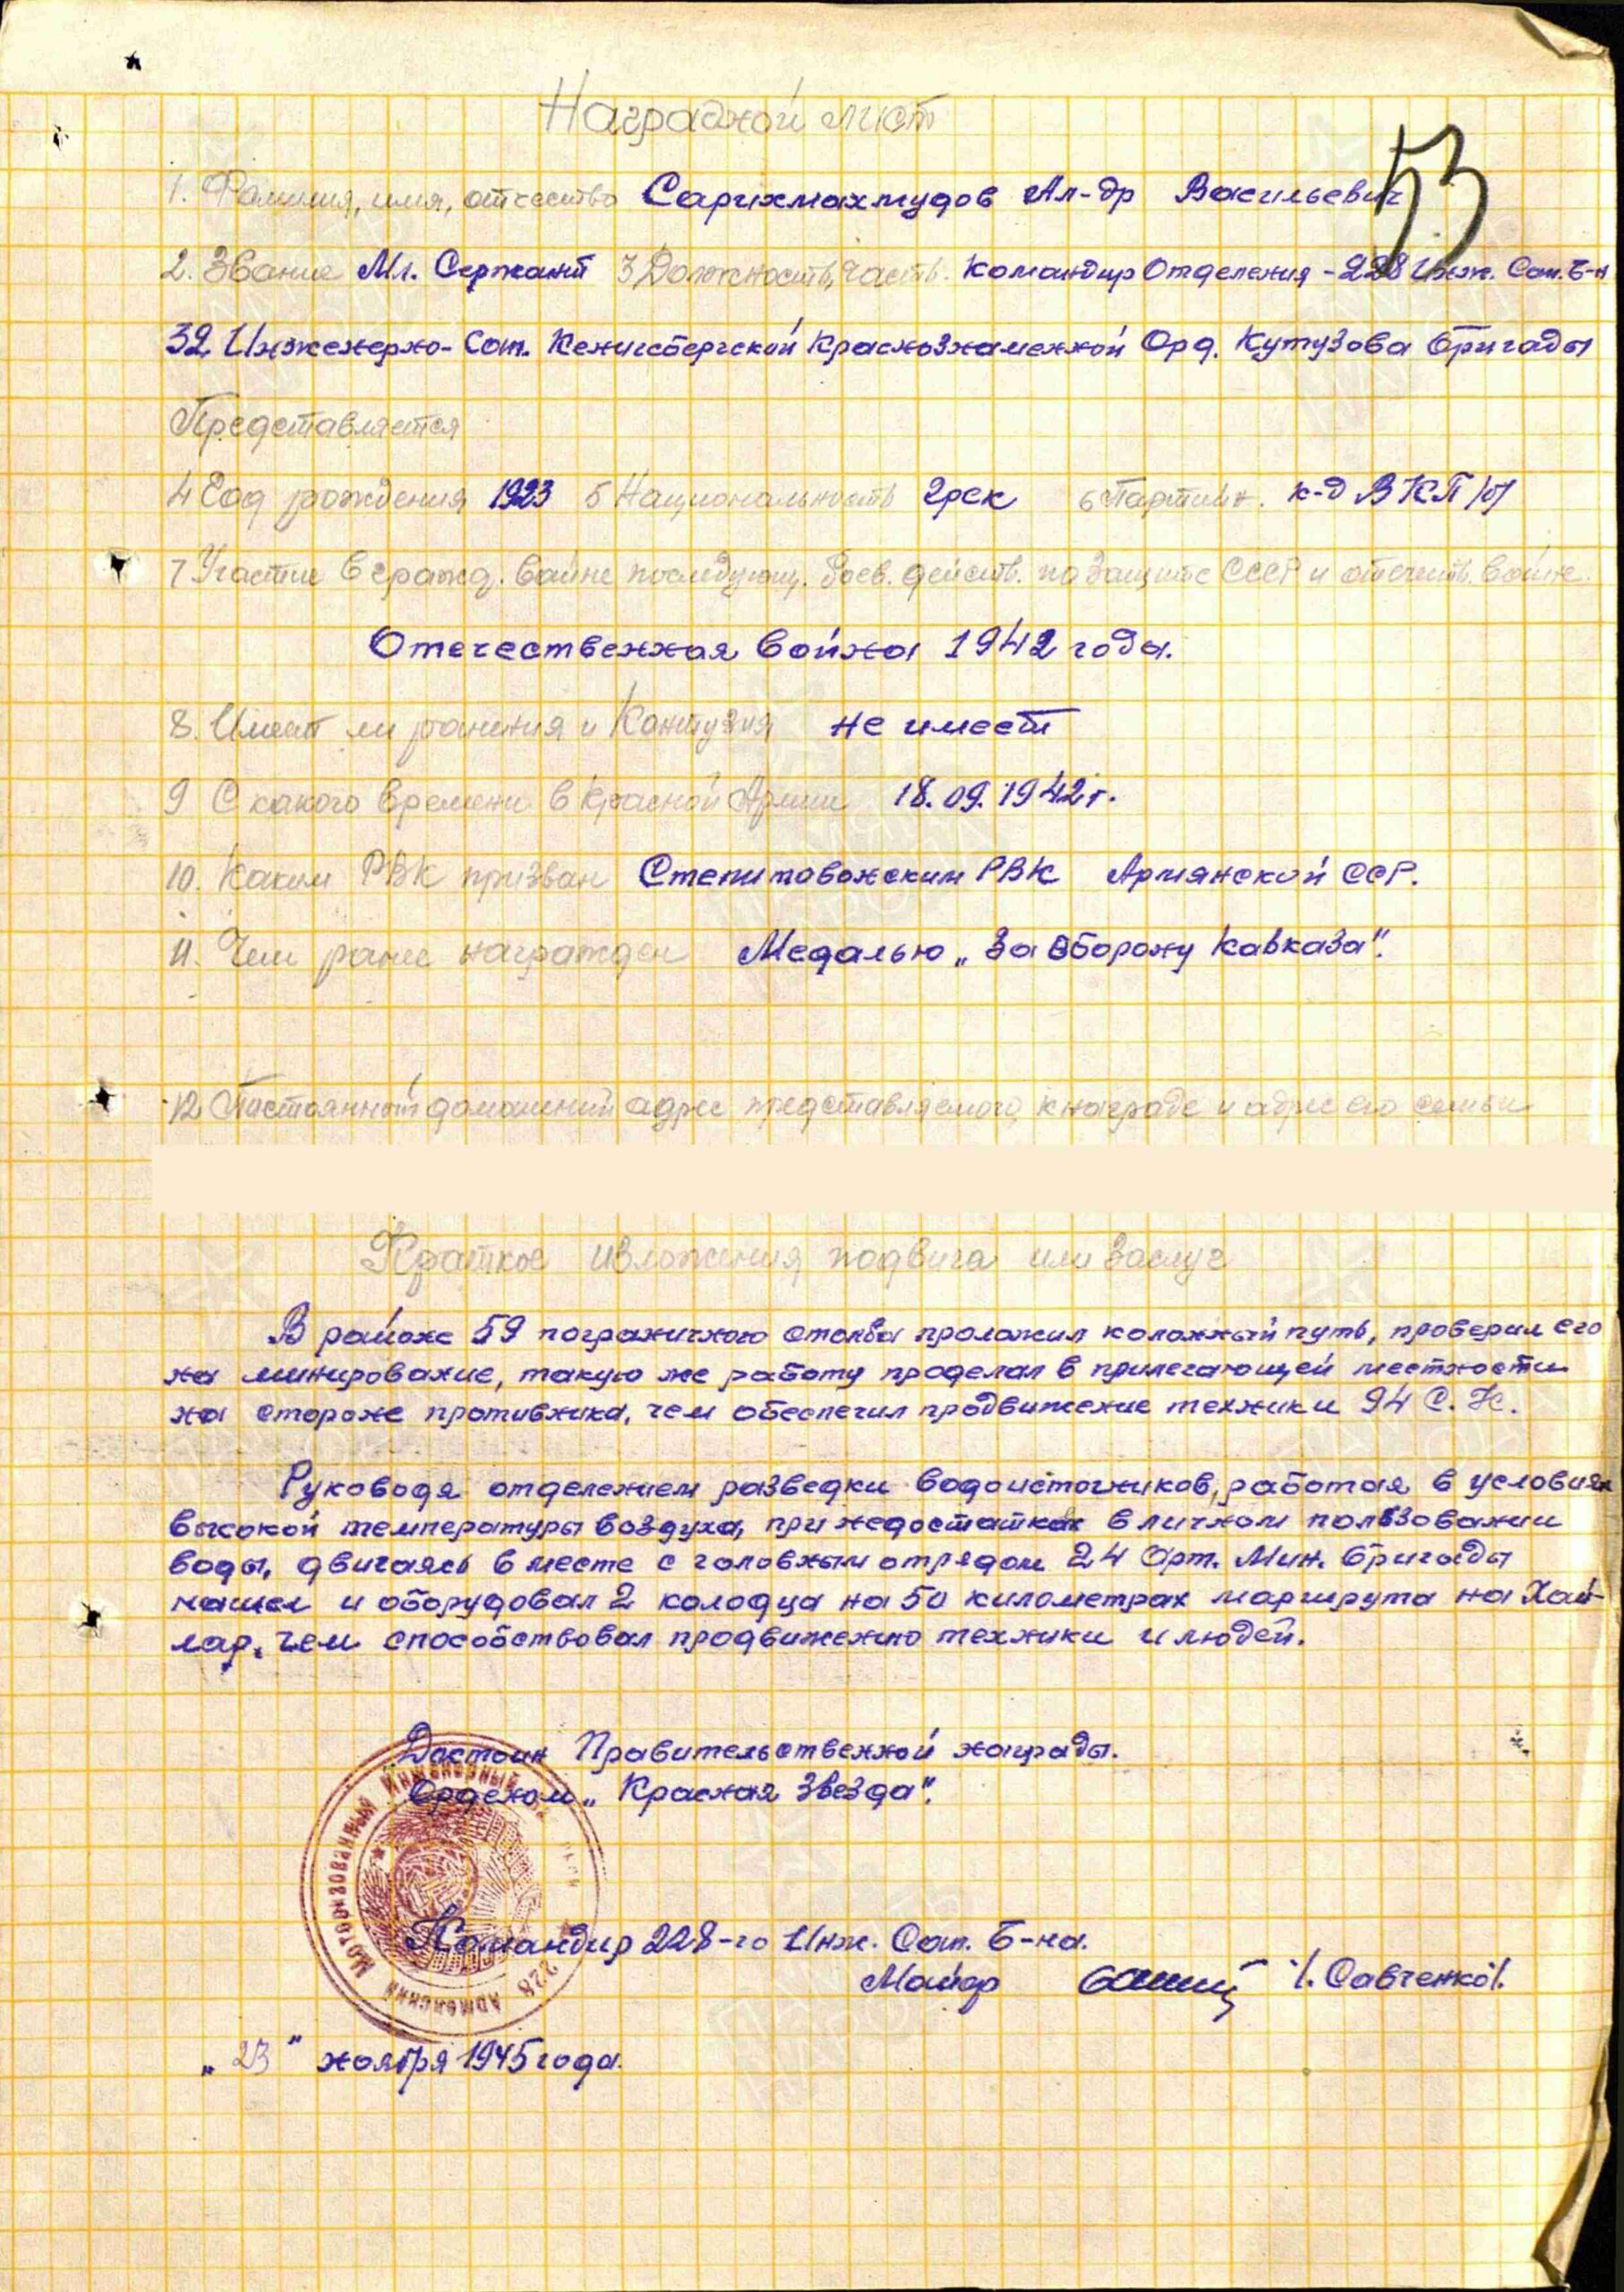 53
Наградной лист
1. Фамилия, имя, отчество Сарихмахмудов Ал-др Васильевич
2. Звание Мл. Сержант 3 Должность, часть. Командир Отделения - 228 Инж. Сап. Б-н
32 Инженерно- Сап. Кенигсбергской Краснознаменной Орд. Кутузова бригады
Представляется
4 Год рождения 1923 5 Национальность грек 6 Партийн. к-д ВКП/б/
7 Участие в гражд. войне последующ. боев. действ. по защите СССР и отечеств. войне.
Отечественная война 1942 года.
8. Имеет ли ранения и Контузия не имеет
9 С какого времени в Красной Армии 18.09.1942 г.
10. Каким РВК призван Степитовонским РВК Армянской ССР.
11. Чем ранее награжден Медалью „За Оборону Кавказа".
12 Постоянный домашний адрес представляемого к награде и адрес его семьи
Краткое изложения подвига или заслуг
В районе 59 пограничного столба проложил колонный путь, проверил его
на минирование, такую же работу проделал в прилегающей местности
на стороне противника, чем обеспечил продвижение техники 94 С. К.
Руководя отделением разведки водоисточников, работая в условиях
высокой температуры воздуха, при недостатках в личном пользовании
воды, двигаясь вместе с головным отрядом 24 Арт. Мин. бригады
нашел и оборудовал 2 колодца на 50 километрах маршрута на Хай-
лар, чем способствовал продвижению техники и людей.
Достоин Правительственной награды.
Орденом „Красная Звезда".
МОТОРИЗОВАННЫЙ ИНЖЕНЕРНЫЙ
228 АРМЕЙСКИЙ
Командир 228-го Инж. Сап. Б-на.
Майор /. Савченко/.
„23" ноября 1945 года.